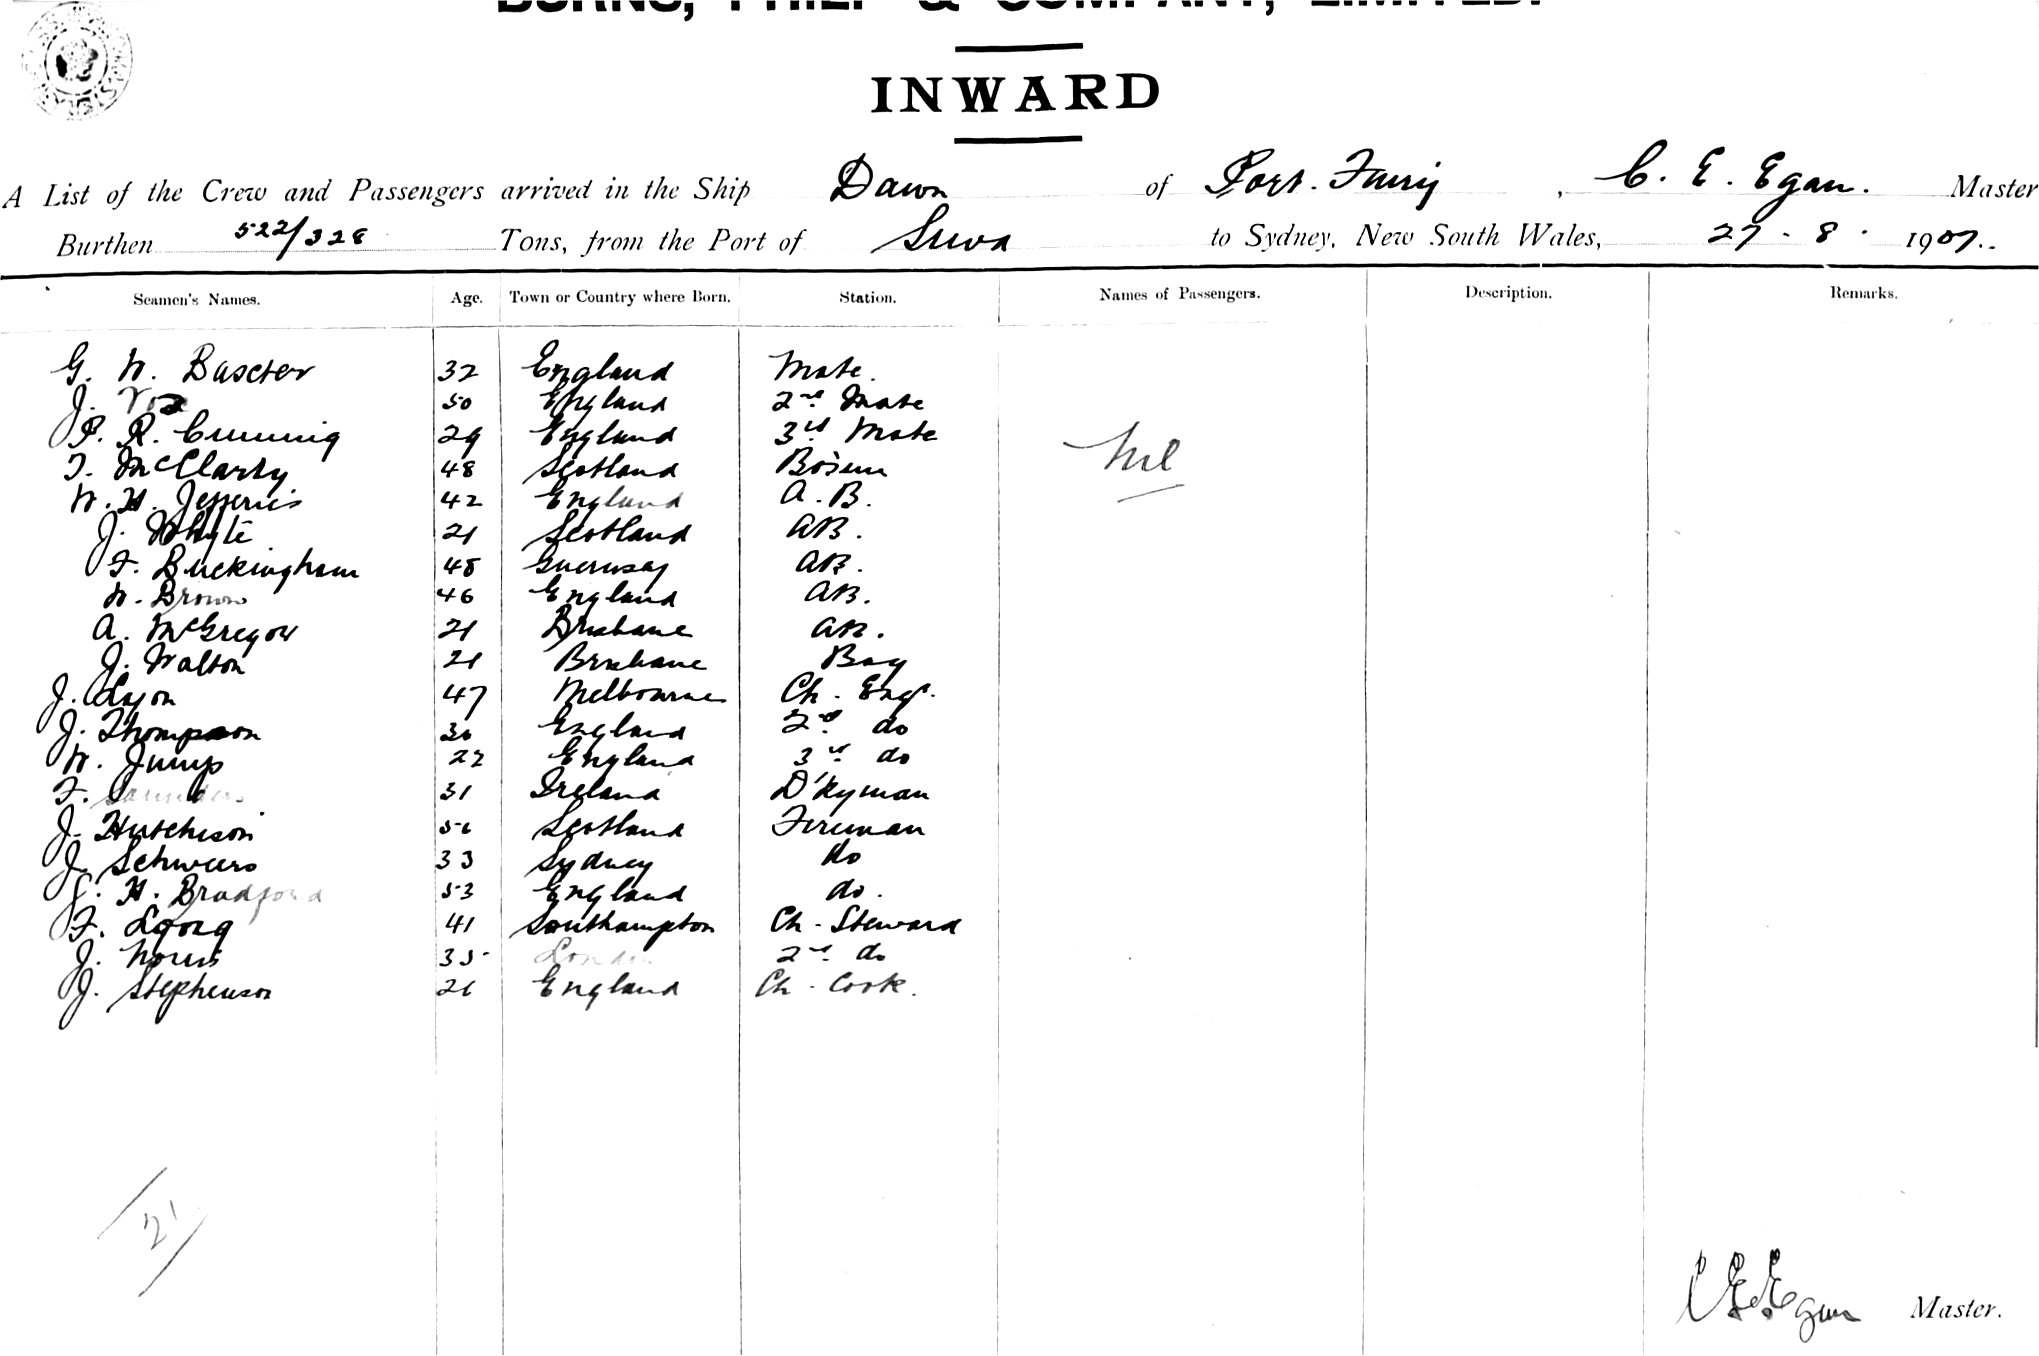 BURNS, PHILP & COMPANY, LIMITED.
INWARD
A List of the Crew and Passengers arrived in the Ship Dawn of Port. Fairy, C. E. Egan. Master
Burthen 522/328 Tons, from the Port of Suva to Sydney, New South Wales, 27 - 8 - 1907.
Seamen's Names. Age. Town or Country where Born. Station. Names of Passengers. Description. Remarks.
G. W. Baxter 32 England Mate.
J. 50 England 2nd Mate
P. R. Cumming 29 England 3rd Mate
T. McClarty 48 Scotland Bo'sun Nil
W. H. Jefferies 42 England A.B.
J. Whyte 21 Scotland AB.
F. Buckingham 48 Guernsey AB.
W. Brown 46 England AB.
A. McGregor 21 Brisbane AB.
J. Walton 21 Brisbane Boy
J. 47 Melbourne Ch. Engr.
J. Thompson England 2nd do
W. Jump 22 England 3rd do
F. Saunders 31 Ireland D'kyman
J. Hutchison Scotland Fireman
J. Schweers 33 Sydney do
H. Bradford 53 England do.
F. Long 41 Southampton Ch. Steward
J. Norris 35 London 2nd do
J. Stephenson England Ch. Cook.
21
C E Egan Master.